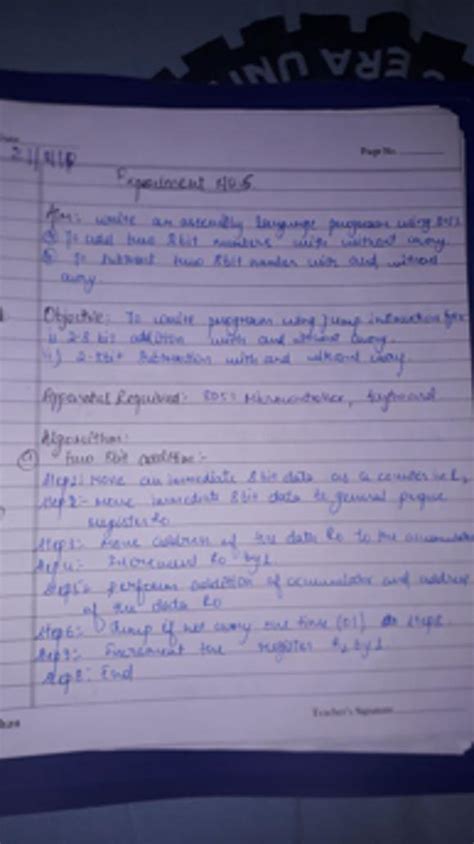 ERA UNI
Page No.
Experiment No. 5
Aim: write an assembly language program using 8051
To add two 8 bit numbers with without carry.
To subtract two 8 bit number with and without
carry.
Objective: To write program using Jump instruction for
i) 2-8 bit addition with and without carry.
ii) 2-8bit Subtraction with and without carry.
Apparatus Required: 8051 Microcontroller, keyboard
Algorithm:
two 8bit addition:-
Step 1: Move an immediate 8 bit data as a counter in
Step 2:- Move immediate 8 bit data to general
register R0
Step 3: Move address of the data R0 to the accumulator
Step 4: Increment R0 by 1.
Step 5: perform addition of accumulator and address
of the data R0
Step 6: Jump if not carry one time (01) to step
Step 7: Increment the register by 1.
Step 8: End
Teacher's Signature